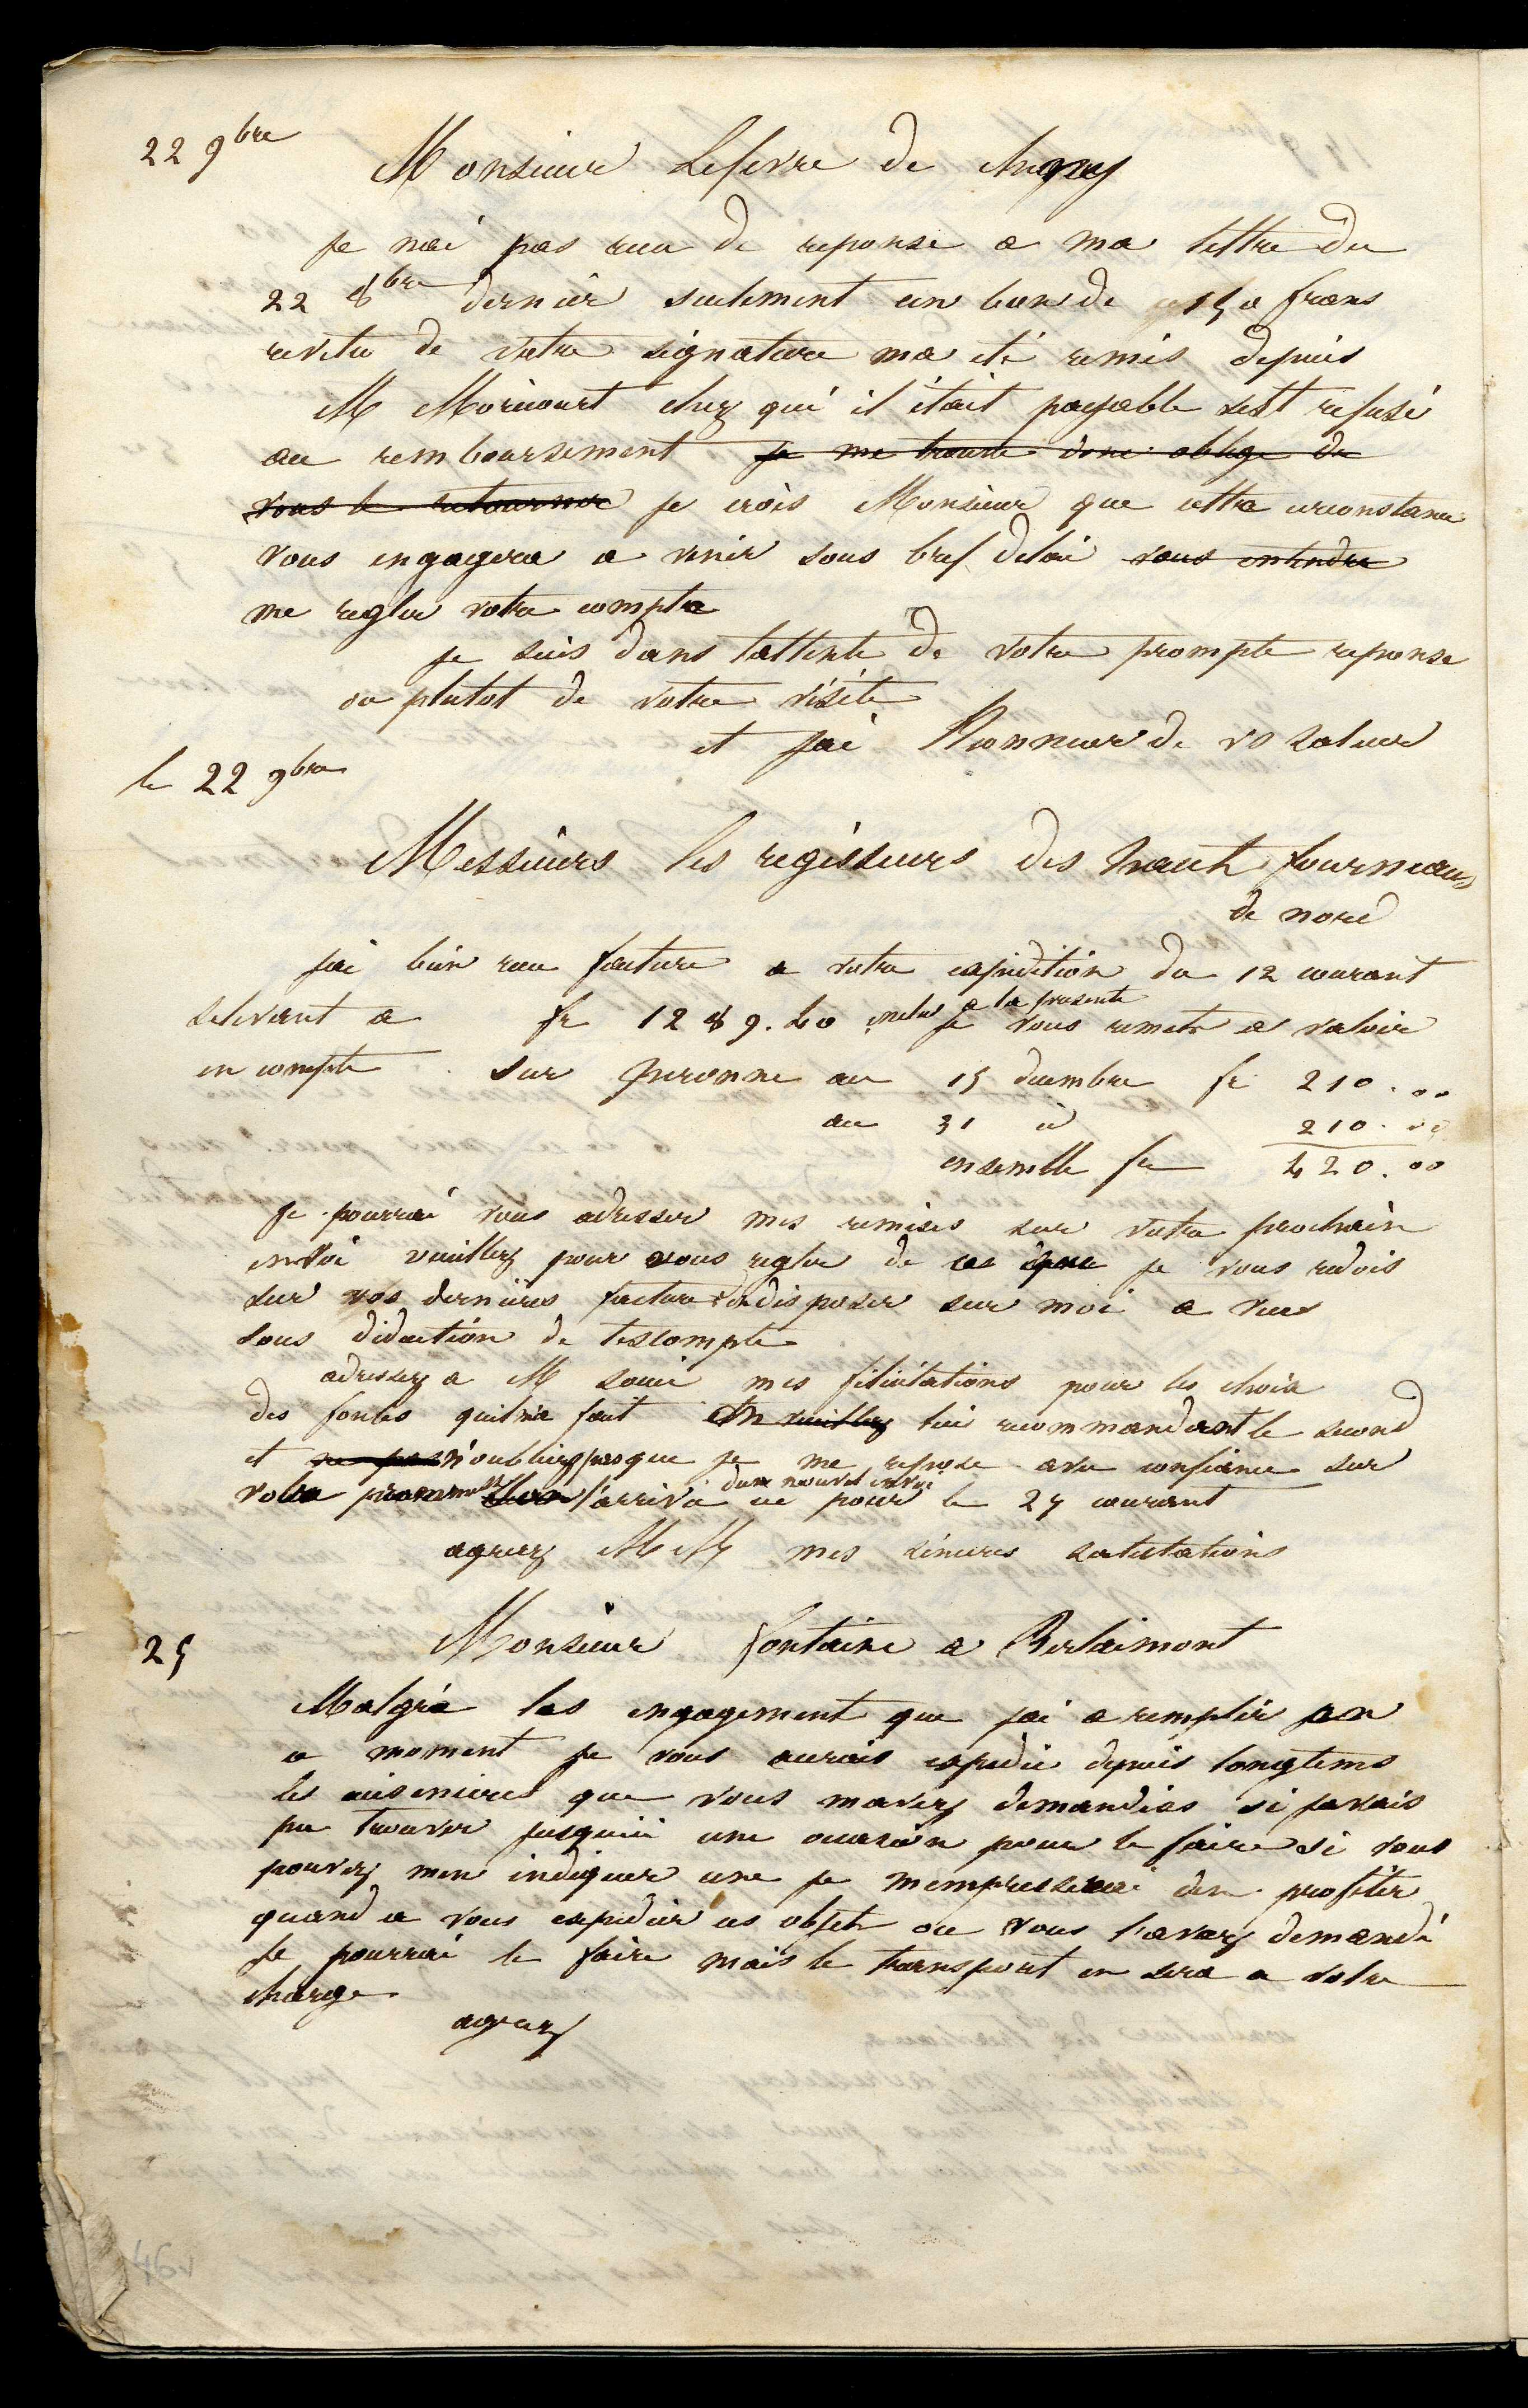 22 9bre
Monsieur Lefevre de chigny
je nai pas recu de reponse a ma lettre du
22 8bre dernier seulement un bon de 150 francs
revetu de votre signature ma eté remis depuis
M Moricourt chez qui il était payable sest refusé
au remboursement je me trouve donc obligé de
vous le retourner je crois Monsieur que cette circonstance
vous engagera a venir sous bref delai vous entendre
me regler votre compte
je suis dans lattente de votre prompte reponse
ou plutot de votre visite
et jai lhonneur de vs saluer
le 22 9bre
Messieurs les regisseurs des haut fourneaux
de noré
jai bien recu facture a votre expédition du 12 courant
selevant a fr 1289.40 inclus a la presente je vous remets a valoir
en compte sur peronne au 15 decembre fr 210.00
au 31 d 210.00
ensemble fr 420.00
je pourrai vous adresser mes remises sur votre prochain
envoi veuillez pour vous regler de ce que je vous redois
sur vos dernières facture disposer sur moi a vue
sous déduction de lescompte
adressez a M mes félicitations pour les choix
des fontes quil ma fait En veuillez lui recommandant le second
et ne pas n'oubliez pas que je me repose avec confiance sur
votre promesse l'arrivé dun nouvel envoi ici pour le 27 courant
agreez MM mes sincères salutations
25
Monsieur fontaine a Berlaimont
Malgré les engagement que jai a remplir en
ce moment je vous aurais expedié depuis longtems
les cuisinieres que vous mavez demandées si javais
pu trouver jusquici une occasion pour le faire si vous
pouvez men indiquer une je mempresserai den profiter
quand a vous expédier ces objets ou vous l'avez demandé
je pourrai le faire mais le transport en sera a votre
charge
agreez
46v